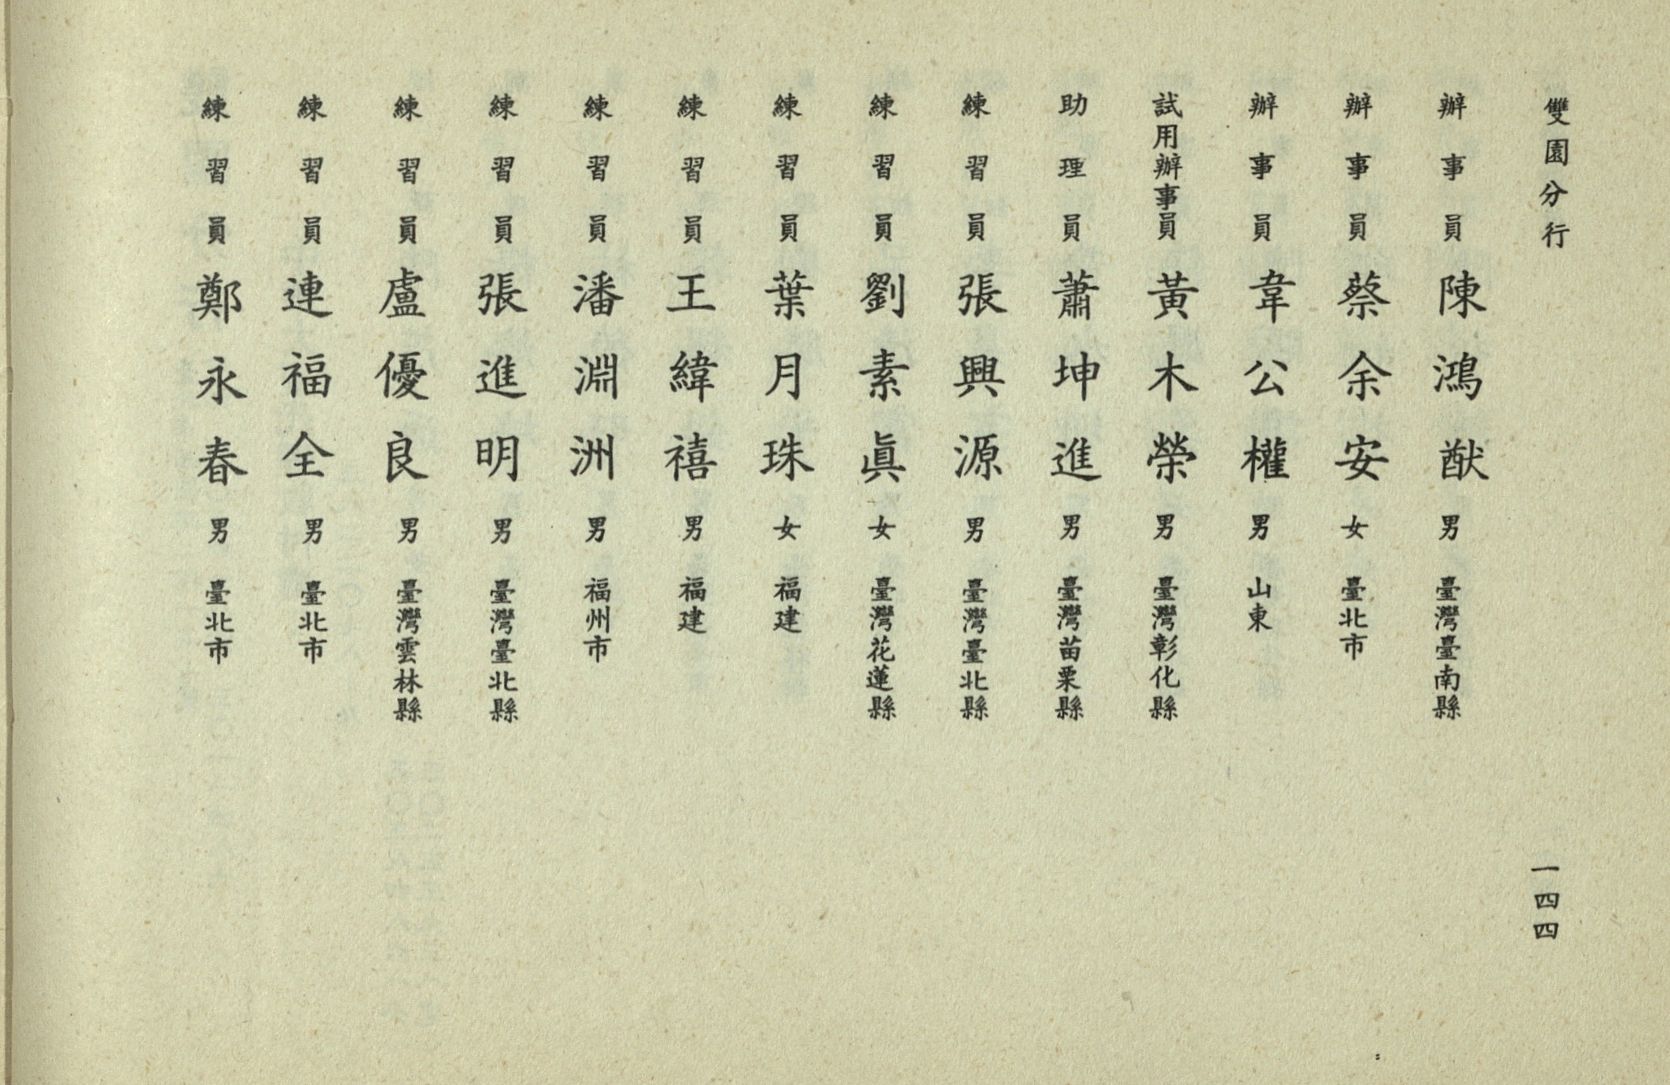 雙園分行
一四四
辦事員 陳鴻猷 男 臺灣臺南縣
辦事員 蔡余安 女 臺北市
辦事員 韋公權 男 山東
試用辦事員 黃木榮 男 臺灣彰化縣
助理員 蕭坤進 男 臺灣苗栗縣
練習員 張興源 男 臺灣臺北縣
練習員 劉素眞 女 臺灣花蓮縣
練習員 葉月珠 女 福建
練習員 王緯禧 男 福建
練習員 潘淵洲 男 福州市
練習員 張進明 男 臺灣臺北縣
練習員 盧優良 男 臺灣雲林縣
練習員 連福全 男 臺北市
練習員 鄭永春 男 臺北市